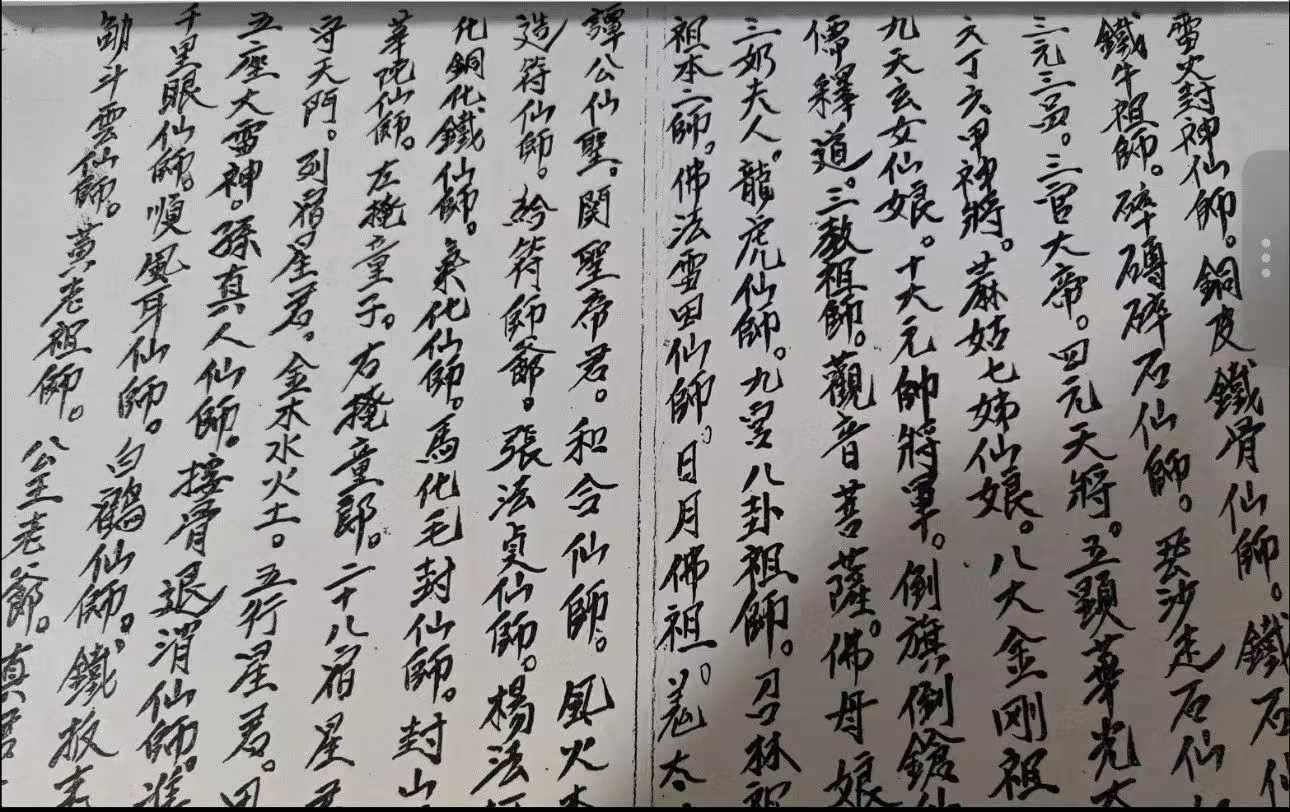 雷火封神仙師。銅皮鐵骨仙師。鐵石仙
鐵牛祖師。碎磚碎石仙師。飛沙走石仙
三元三品。三官大帝。四元天將。五顯華光大
六丁六甲神將。蔴姑七姊仙娘。八大金剛祖
九天玄女仙娘。十大元帥將軍。倒旗倒鎗仙
儒釋道。三教祖師。觀音菩薩。佛母娘
三奶夫人。龍虎仙師。九宮八卦祖師。召林祖
祖本二師。佛法雪田仙師。日月佛祖。羗太
譚公仙聖。関聖帝君。和合仙師。風火
造符仙師。給符師爺。張法貞仙師。楊法
化銅化鐵仙師。桑化仙師。馬化毛封仙師。封山
華陀仙師。左掩童子。右掩童郎。二十八宿星君
守天門。列宿星君。金木水火土。五行星君。田
五座大雷神。孫真人仙師。接骨退消仙師。
千里眼仙師。順風耳仙師。白鶴仙師。鐵扳
觔斗雲仙師。黃老祖師。公王老爺。真君